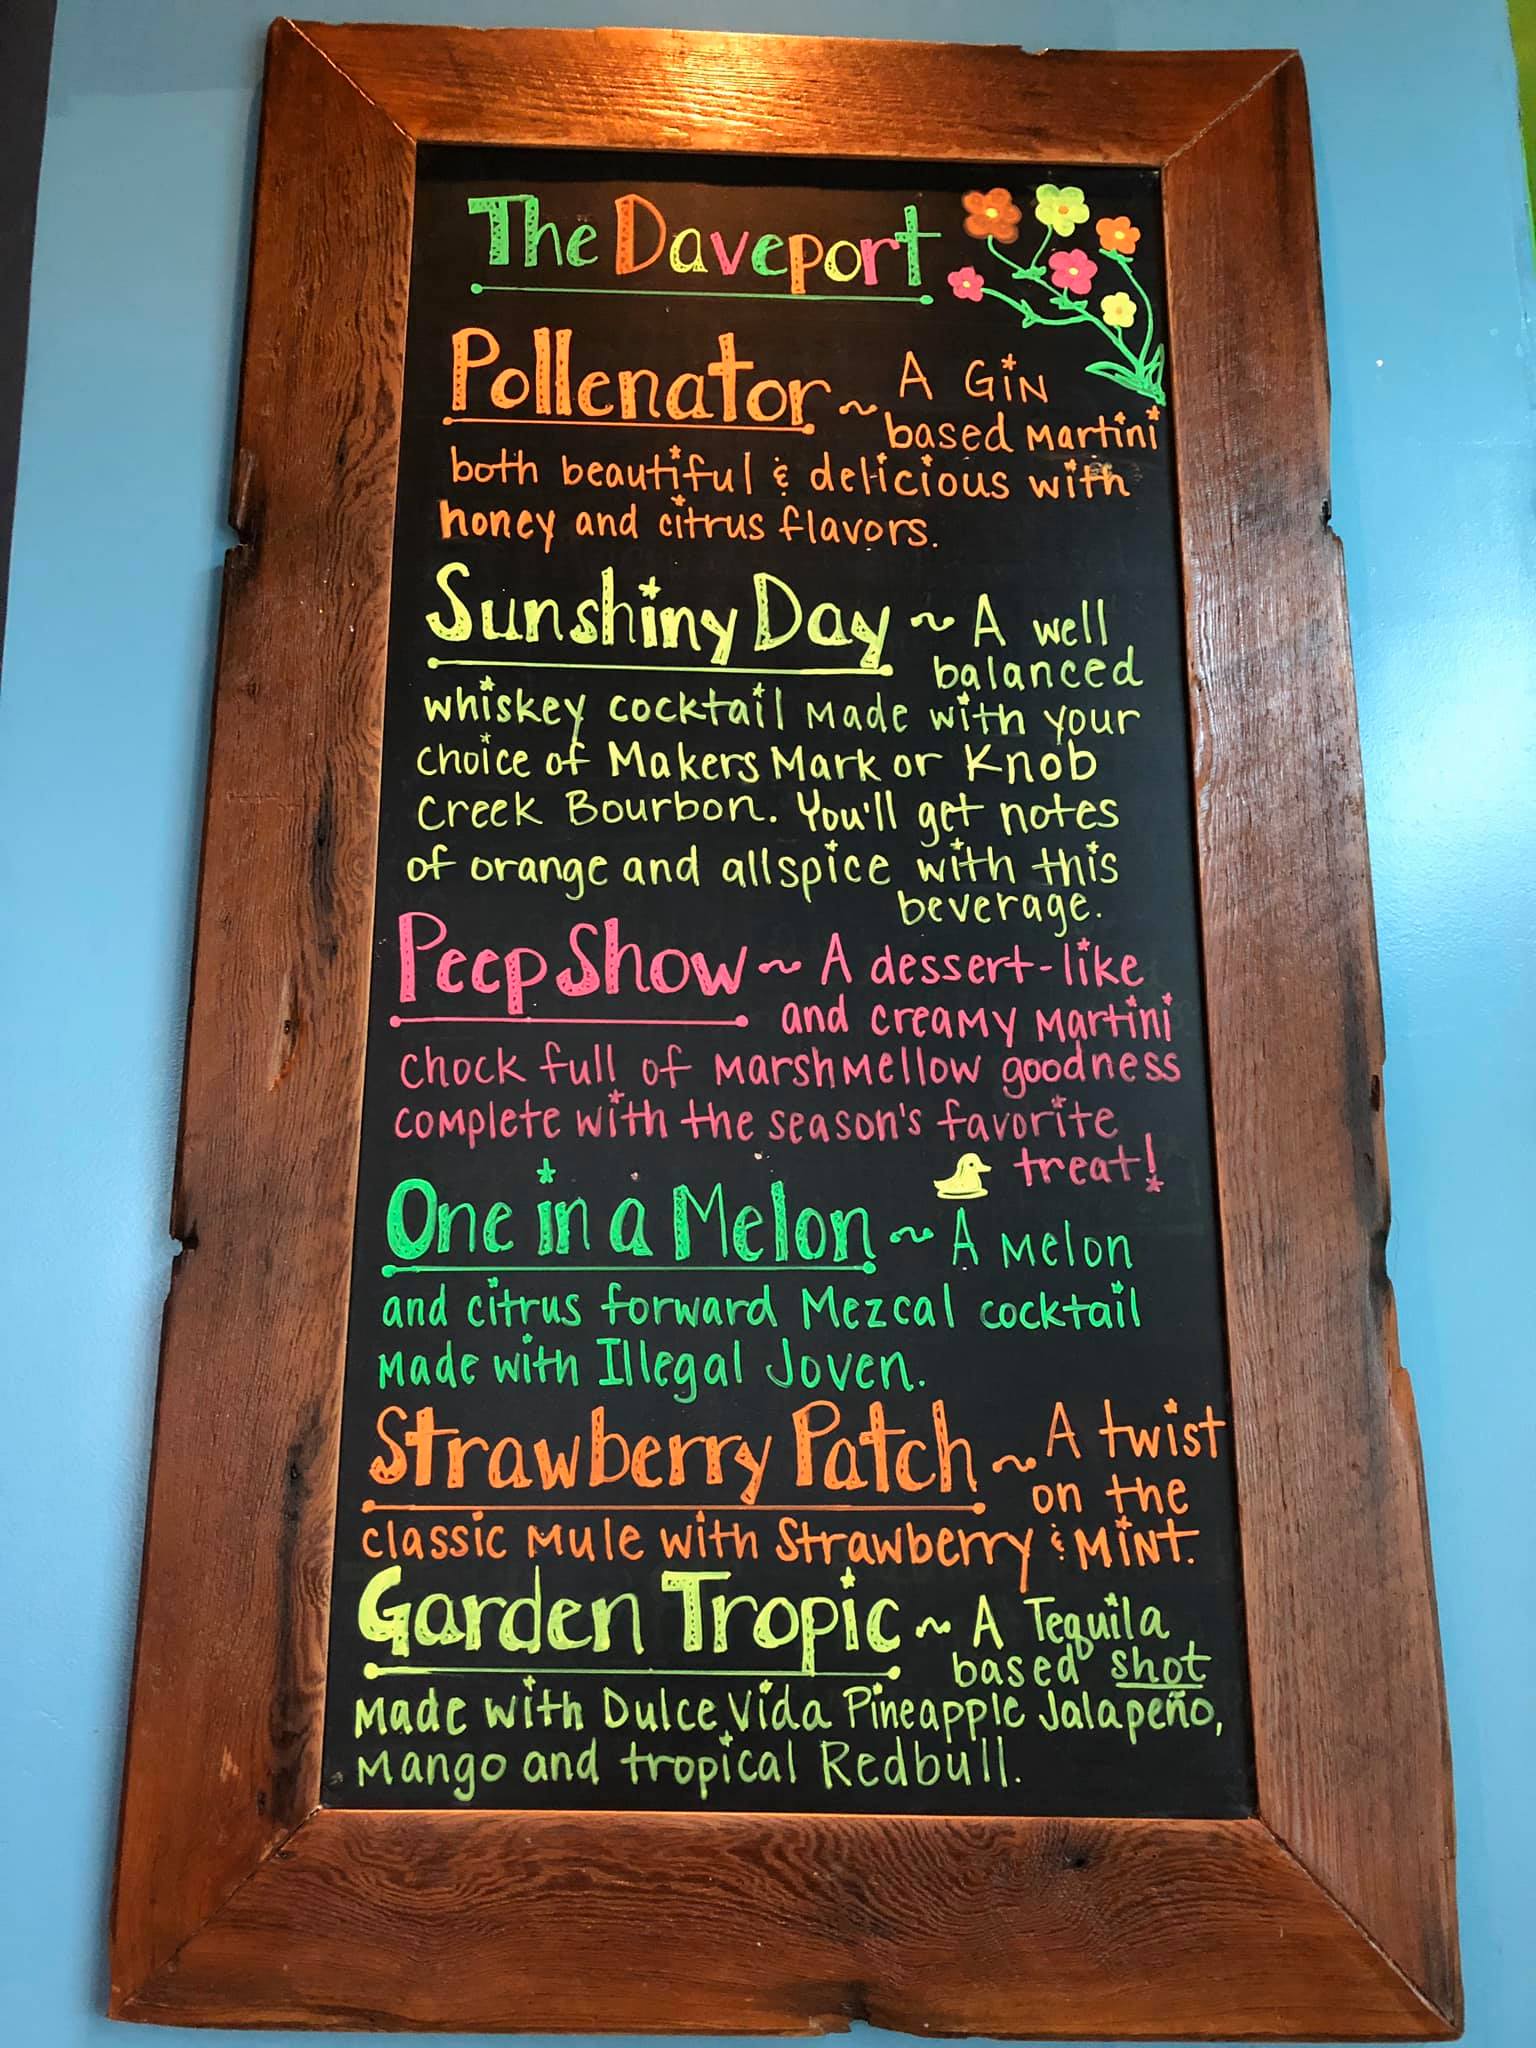 The Daveport
Pollenator ~ A Gin
based Martini
both beautiful & delicious with
honey and citrus flavors.
Sunshiny Day ~ A well
balanced
whiskey cocktail made with your
choice of Makers Mark or Knob
Creek Bourbon. You'll get notes
of orange and allspice with this
beverage.
Peep Show ~ A dessert-like
and creamy martini
chock full of marshmellow goodness
complete with the season's favorite
treat!
One in a Melon ~ A melon
and citrus forward Mezcal cocktail
made with Illegal Joven.
Strawberry Patch ~ A twist
on the
classic mule with Strawberry & Mint.
Garden Tropic ~ A Tequila
based shot
made with Dulce Vida Pineapple Jalapeño,
Mango and tropical Redbull.